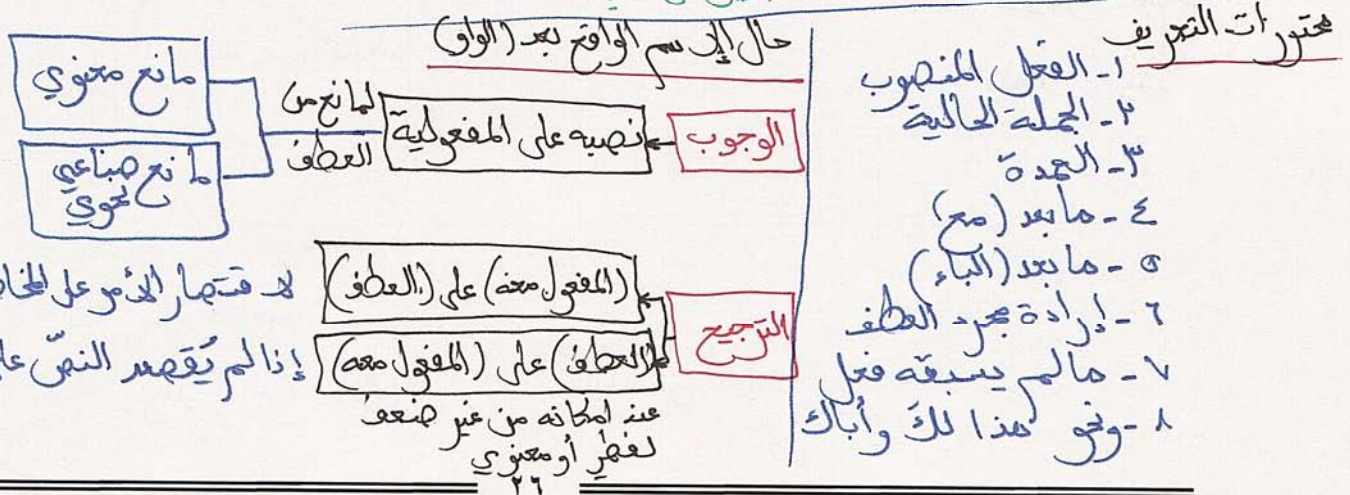 محترزات التعريف
١- الفعل المنصوب
٢- الجملة الحالية
٣- العمدة
٤- ما بعد (مع)
٥- ما بعد (الباء)
٦- إرادة مجرد العطف
٧- ما لم يسبقه فعل
٨- ونحو هذا لكَ وأباك
حال الإسم الواقع بعد (الواو)
الوجوب
نصبه على المفعولية
لمانع من العطف
مانع معنوي
مانع صناعي نحوي
الترجيح
(المفعول معه) على (العطف)
لاقتصار الأمر على
(العطف) على (المفعول معه)
إذا لم يُقصد النصّ
عند امكانه من غير ضعف
لفظي أو معنوي
٢٦